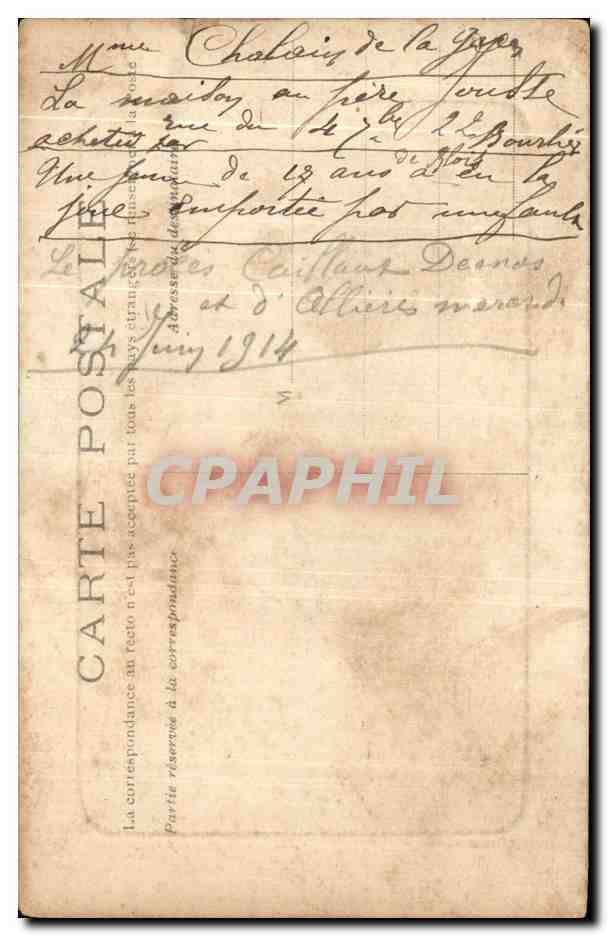 Mme Chalais de la
La maison au père Jousse
achetée par rue du 4 7bre 22 Bourlier
de Blois
Une femme de 17 ans a eu la
joue emportée par un
Le procès Caillaux Desnos
et d'Allières mercredi
24 Juin 1914
CARTE POSTALE
La correspondance au recto n'est pas acceptée par tous les pays étrangers (se renseigner à la Poste)
Partie réservée à la correspondance
Adresse du destinataire
M
CPAPHIL